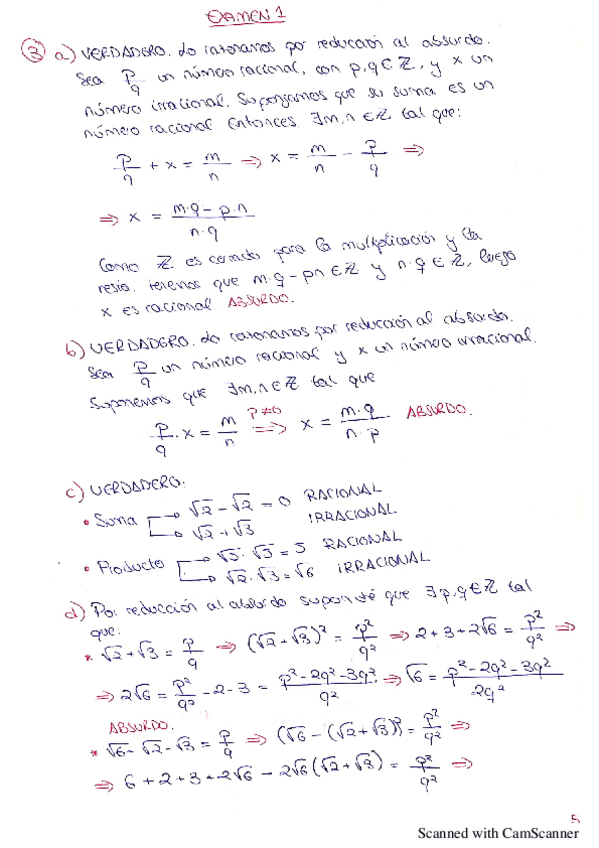 EXAMEN 1
③ a) VERDADERO. Lo razonamos por reducción al absurdo.
Sea p/q un número racional, con p,q ∈ ℤ, y x un
número irracional. Supongamos que su suma es un
número racional. Entonces, ∃m,n ∈ ℤ tal que:
p/q + x = m/n ⇒ x = m/n - p/q ⇒
⇒ x = (m·q - p·n)/(n·q)
Como ℤ es cerrado para la multiplicación y la
resta, tenemos que m·q - pn ∈ ℤ y n·q ∈ ℤ, luego
x es racional ABSURDO.
b) VERDADERO. Lo razonamos por reducción al absurdo.
Sea p/q un número racional y x un número irracional.
Suponemos que ∃m,n ∈ ℤ tal que
p/q · x = m/n ⇒ (p≠0) x = (m·q)/(n·p) ABSURDO.
c) VERDADERO:
• Suma → √2 - √2 = 0 RACIONAL
→ √2 + √3 IRRACIONAL
• Producto → √5 · √5 = 5 RACIONAL
→ √2 · √3 = √6 IRRACIONAL
d) Por reducción al absurdo supondré que ∃p,q ∈ ℤ tal
que:
* √2 + √3 = p/q ⇒ (√2 + √3)² = p²/q² ⇒ 2 + 3 + 2√6 = p²/q² ⇒
⇒ 2√6 = p²/q² - 2 - 3 = (p² - 2q² - 3q²)/q² ⇒ √6 = (p² - 2q² - 3q²)/2q²
ABSURDO.
* √6 - √2 - √3 = p/q ⇒ (√6 - (√2 + √3))² = p²/q² ⇒
⇒ 6 + 2 + 3 + 2√6 - 2√6(√2 + √3) = p²/q² ⇒
5
Scanned with CamScanner